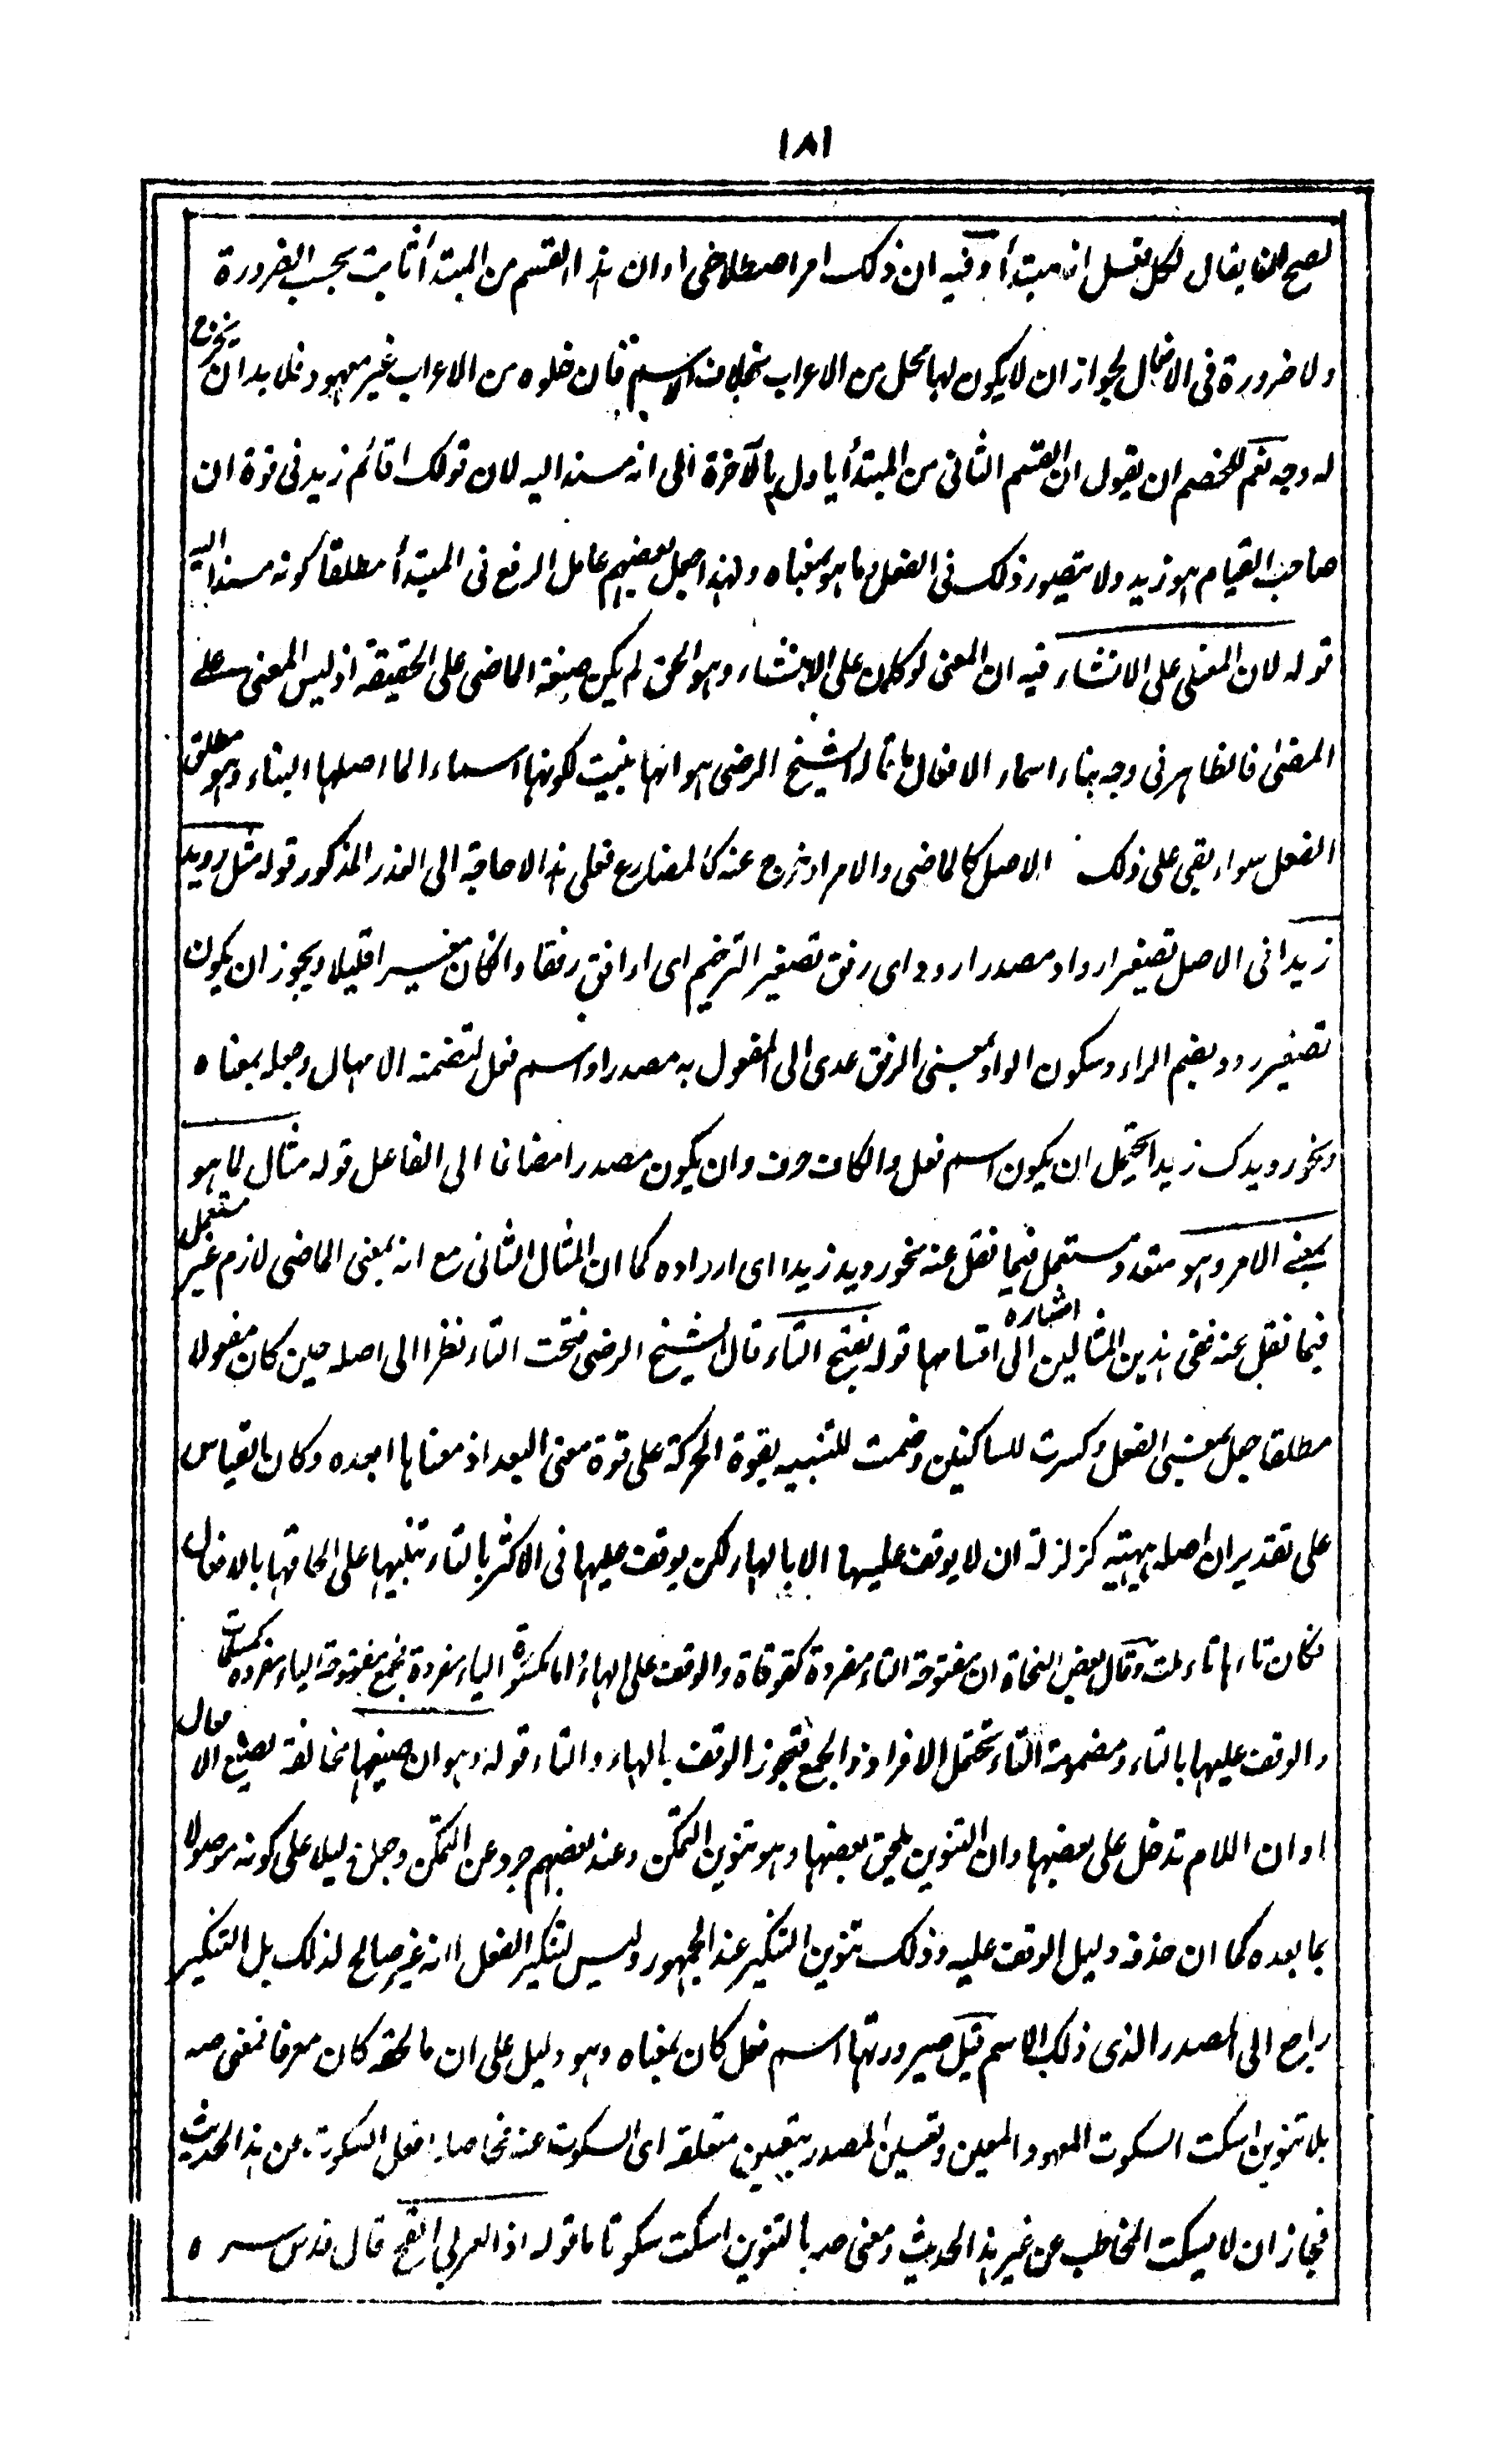 ١٨١
لصح ايضا يقال لكل فعل انه مبتدأ وفيه ان ذلك امر اصطلاحى او ان هذا القسم من المبتدأ ثابت بحسب الضرورة
ولا ضرورة فى الافعال لجواز ان لا يكون لها محل من الاعراب بخلاف الاسم فان خلوه من الاعراب غير معهود فلا بد ان يخرج
له وجه نعم للخصم ان يقول ان القسم الثانى من المبتدأ ياول بالآخرة الى انه مسند اليه لان قولك اقائم زيد فى قوة ان
صاحب القيام هو زيد ولا يتصور ذلك فى الفعل وما هو بمعناه ولهذا جعل بعضهم عامل الرفع فى المبتدأ مطلقا كونه مسندا اليه
قوله لان المعنى على الانشاء فيه ان المعنى لو كان على الانشاء وهو الحق لم يكن صيغة الماضى على الحقيقة اذ ليس المعنى على
المضى فالظاهر فى وجه بناء اسماء الافعال ما قاله الشيخ الرضى هو انها بنيت لكونها اسماء لما اصلها البناء وهو مطلق
الفعل سواء بقى على ذلك الاصل كالماضى والامر او خرج عنه كالمضارع فعلى هذا لا حاجة الى العذر المذكور قوله مثل رويد
زيدا فى الاصل تصغير ارواد مصدر ارود اى رفق تصغير الترخيم اى ارفق رفقا وان كان صغيرا قليلا ويجوز ان يكون
تصغير رود بضم الراء وسكون الواو بمعنى الرفق عدى الى المفعول به مصدرا او اسم فعل لتضمنه الامهال وجعله بمعناه
ونحو رويدك زيدا يحتمل ان يكون اسم فعل والكاف حرف وان يكون مصدرا مضافا الى الفاعل قوله مثال لما هو
بمعنى الامر وهو متعد ومستعمل فيما نقل عنه نحو رويد زيدا اى ارواده كما ان المثال الثانى مع انه بمعنى الماضى لازم غير مستعمل
فيما نقل عنه ففى هذين المثالين اشارة الى اقسامها قوله بفتح التاء قال الشيخ الرضى فتحت التاء نظرا الى اصله حين كان مفعولا
مطلقا جعل بمعنى الفعل وكسرت للساكنين وضمت للتنبيه بقوة الحركة على قوة معنى البعد اذ معناها ابعده وكان القياس
على تقدير ان اصله هيهية كزلزلة ان لا يوقف عليها الا بالهاء لكن يوقف عليها فى الاكثر بالتاء تنبيها على الحاقها بالافعال
فكان تاءها تاء قامت وقال بعض النحاة ان مفتوحة التاء مفردة كقوقاة والوقف على الهاء واما مكسورة التاء فجمع مفتوحة التاء مفردة كمسلمات
والوقف عليها بالتاء ومضمومة التاء تحتمل الافراد والجمع فتجوز الوقف بالهاء والتاء قوله وهو ان صيغها مخالفة لصيغ الافعال
او ان اللام تدخل على بعضها وان التنوين يلحق بعضها وهو تنوين التمكن وعند بعضهم جرد عن التمكن وجعل دليلا على كونه موصولا
بما بعده كما ان حذفه دليل الوقف عليه وذلك تنوين التنكير عند الجمهور وليس لتنكير الفعل اذ انه غير صالح لذلك بل التنكير
راجع الى المصدر الذى ذلك الاسم قبل صيرورتها اسم فعل كان بمعناه وهو دليل على ان ما لحقه كان معرفا فمعنى صه
بلا تنوين اسكت السكوت المعهود المعين وتعيين المصدر بتعيين متعلقه اى السكوت عنه فحاصله افعل السكوت عن هذا الحديث
فجاز ان لا يسكت المخاطب عن غير هذا الحديث ومعنى صه بالتنوين اسكت سكوتا ما قوله اذ العربى القح قال قدس سره